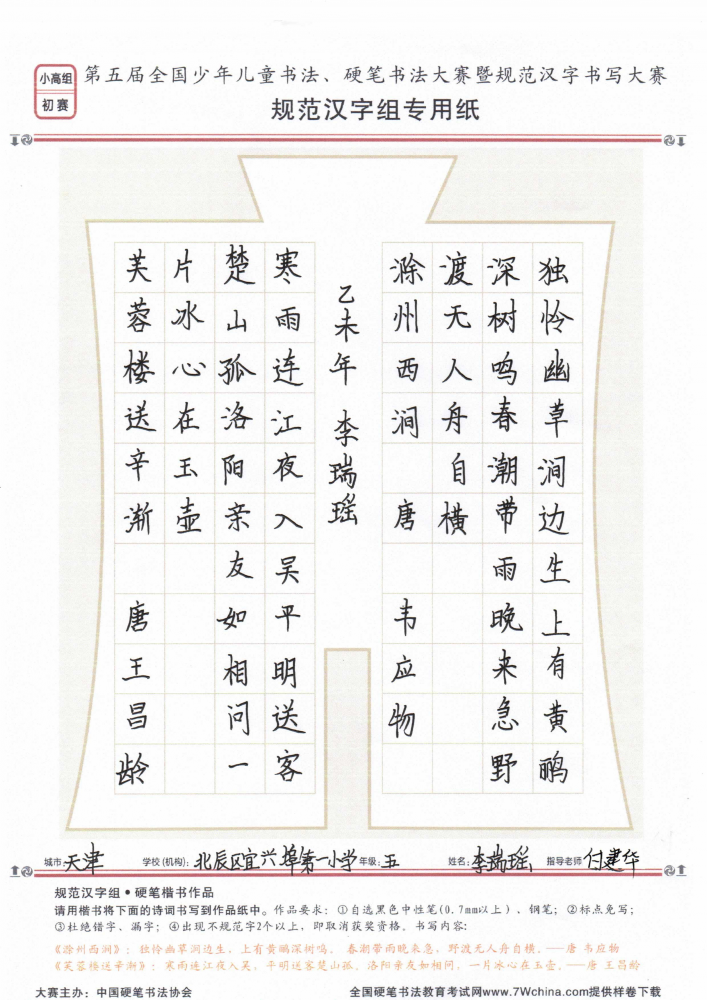 小高组
初赛
第五届全国少年儿童书法、硬笔书法大赛暨规范汉字书写大赛
规范汉字组专用纸
独怜幽草涧边生上有黄鹂
深树鸣春潮带雨晚来急野
渡无人舟自横
滁州西涧 唐 韦应物
乙未年 李瑞瑶
寒雨连江夜入吴平明送客
楚山孤洛阳亲友如相问一
片冰心在玉壶
芙蓉楼送辛渐 唐王昌龄
城市:天津 学校(机构):北辰区宜兴埠第一小学 年级:五 姓名:李瑞瑶 指导老师 付建华
规范汉字组•硬笔楷书作品
请用楷书将下面的诗词书写到作品纸中。作品要求：①自选黑色中性笔(0.7mm以上)、钢笔；②标点免写；
③杜绝错字、漏字；④出现不规范字2个以上，即取消获奖资格。书写内容：
《滁州西涧》：独怜幽草涧边生，上有黄鹂深树鸣。 春潮带雨晚来急，野渡无人舟自横。——唐 韦应物
《芙蓉楼送辛渐》：寒雨连江夜入吴，平明送客楚山孤。洛阳亲友如相问，一片冰心在玉壶。——唐 王昌龄
大赛主办：中国硬笔书法协会 全国硬笔书法教育考试网www.7Wchina.com提供样卷下载